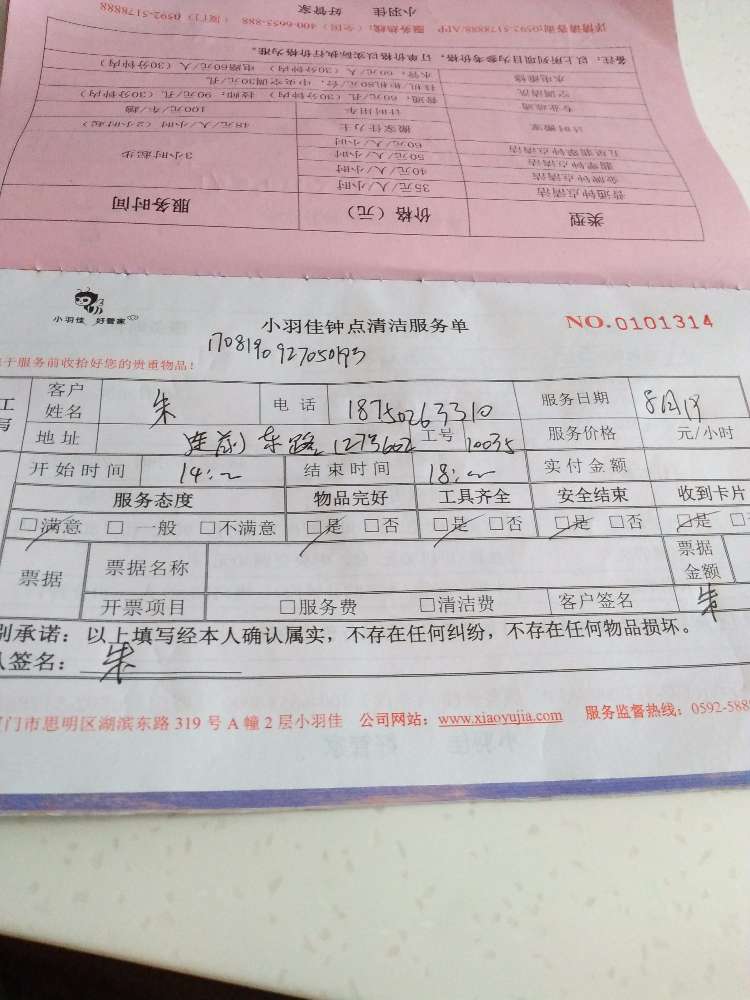 详情请咨询:0592-5178888/APP 服务热线:(全国)400-6655-888 (厦门)0592-5178888
小羽佳 好管家
备注:以上所列项目为参考价格,订单价格以实际执行价格为准。
水电维修 水管:60元/人(30分钟内) 电路60元/人(30分钟内)
空调清洗 挂机/柜机80元/台,中央空调30元/孔
专业疏通 普通:60元/孔(30分钟内) 技师:90元/孔(30分钟内)
计时搬家 计时用车 100元/车/趟
搬家壮力士 48元/人/小时(2小时起)
五星翡翠钟点清洁 60元/人/小时
翡翠钟点清洁 50元/人/小时
金牌钟点清洁 40元/人/小时 3小时起步
普通钟点清洁 35元/人/小时
类型 价格(元) 服务时间
小羽佳 好管家
小羽佳钟点清洁服务单
NO.0101314
170819092705093
于服务前收拾好您的贵重物品!
工 客户姓名 朱 电话 18750263310 服务日期
写 地址 莲前东路 1273602 工号 10035 服务价格 元/小时
开始时间 14: 结束时间 18: 实付金额
服务态度 物品完好 工具齐全 安全结束 收到卡片
□满意 □一般 □不满意 □是 □否 □是 □否 □是 □否 □是
票据 票据名称 票据金额
开票项目 □服务费 □清洁费 客户签名 朱
别承诺:以上填写经本人确认属实,不存在任何纠纷,不存在任何物品损坏。
人签名: 朱
门市思明区湖滨东路 319 号 A 幢 2 层小羽佳 公司网站:www.xiaoyujia.com 服务监督热线:0592-5888